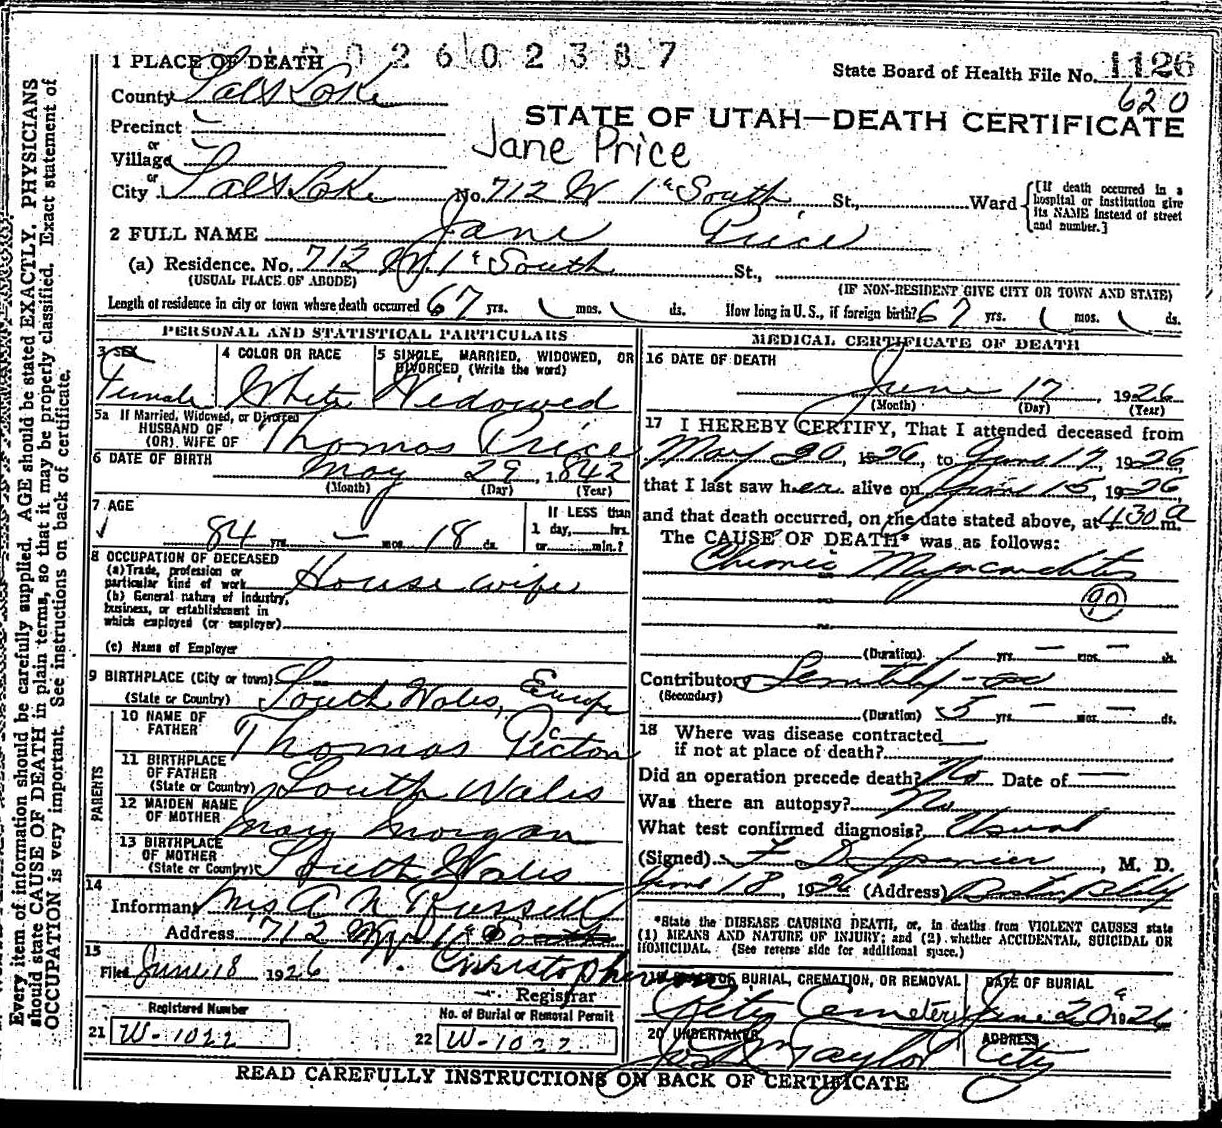 1 PLACE OF DEATH 0 2 6 0 2 3 8 7
State Board of Health File No. 1126
County Salt Lake
620
STATE OF UTAH—DEATH CERTIFICATE
Precinct
or
Village
Jane Price
or
City Salt Lake No. 712 W 1st South St., Ward
[If death occurred in a hospital or institution give its NAME instead of street and number.]
2 FULL NAME Jane Price
(a) Residence. No. 712 W. 1st South St.,
(USUAL PLACE OF ABODE) (IF NON-RESIDENT GIVE CITY OR TOWN AND STATE)
Length of residence in city or town where death occurred 67 yrs. mos. ds. How long in U. S., if foreign birth? 67 yrs. mos. ds.
PERSONAL AND STATISTICAL PARTICULARS
3 SEX
Female
4 COLOR OR RACE
White
5 SINGLE, MARRIED, WIDOWED, OR DIVORCED (Write the word)
Widowed
5a If Married, Widowed, or Divorced
HUSBAND OF
(OR) WIFE OF Thomas Price
6 DATE OF BIRTH May 29, 1842
(Month) (Day) (Year)
7 AGE
84 yrs. — mos. 18 ds.
If LESS than
1 day, hrs.
or min.?
8 OCCUPATION OF DECEASED
(a) Trade, profession or
particular kind of work House wife
(b) General nature of industry,
business, or establishment in
which employed (or employer)
(c) Name of Employer
9 BIRTHPLACE (City or town)
(State or Country) South Wales, Europe
PARENTS
10 NAME OF
FATHER Thomas Picton
11 BIRTHPLACE
OF FATHER
(State or Country) South Wales
12 MAIDEN NAME
OF MOTHER Mary Morgan
13 BIRTHPLACE
OF MOTHER
(State or Country) South Wales
14
Informant Mrs A N Russell
Address 712 W 1st South
15
Filed June 18 1926 W. Christopherson
Registrar
Registered Number
21 W-1022
No. of Burial or Removal Permit
22 W-1022
MEDICAL CERTIFICATE OF DEATH
16 DATE OF DEATH
June 17, 1926
(Month) (Day) (Year)
17 I HEREBY CERTIFY, That I attended deceased from
May 20, 1926, to June 17, 1926,
that I last saw her alive on June 15, 1926,
and that death occurred, on the date stated above, at 430 a m.
The CAUSE OF DEATH* was as follows:
Chronic Myocarditis
90
(Duration) 1 yrs. — mos. — ds.
Contributory Senility
(Secondary)
(Duration) 5 yrs. — mos. — ds.
18 Where was disease contracted
if not at place of death?
Did an operation precede death? No Date of —
Was there an autopsy? No
What test confirmed diagnosis? Usual
(Signed) F D Spencer, M. D.
June 18, 1926 (Address) Boston Bldg
*State the DISEASE CAUSING DEATH, or, in deaths from VIOLENT CAUSES state
(1) MEANS AND NATURE OF INJURY; and (2) whether ACCIDENTAL, SUICIDAL OR
HOMICIDAL. (See reverse side for additional space.)
19 PLACE OF BURIAL, CREMATION, OR REMOVAL
City Cemetery
DATE OF BURIAL
June 20 1926
20 UNDERTAKER
Jos Wm Taylor
ADDRESS
City
READ CAREFULLY INSTRUCTIONS ON BACK OF CERTIFICATE
Every item of information should be carefully supplied. AGE should be stated EXACTLY. PHYSICIANS
should state CAUSE OF DEATH in plain terms, so that it may be properly classified. Exact statement of
OCCUPATION is very important. See instructions on back of certificate.